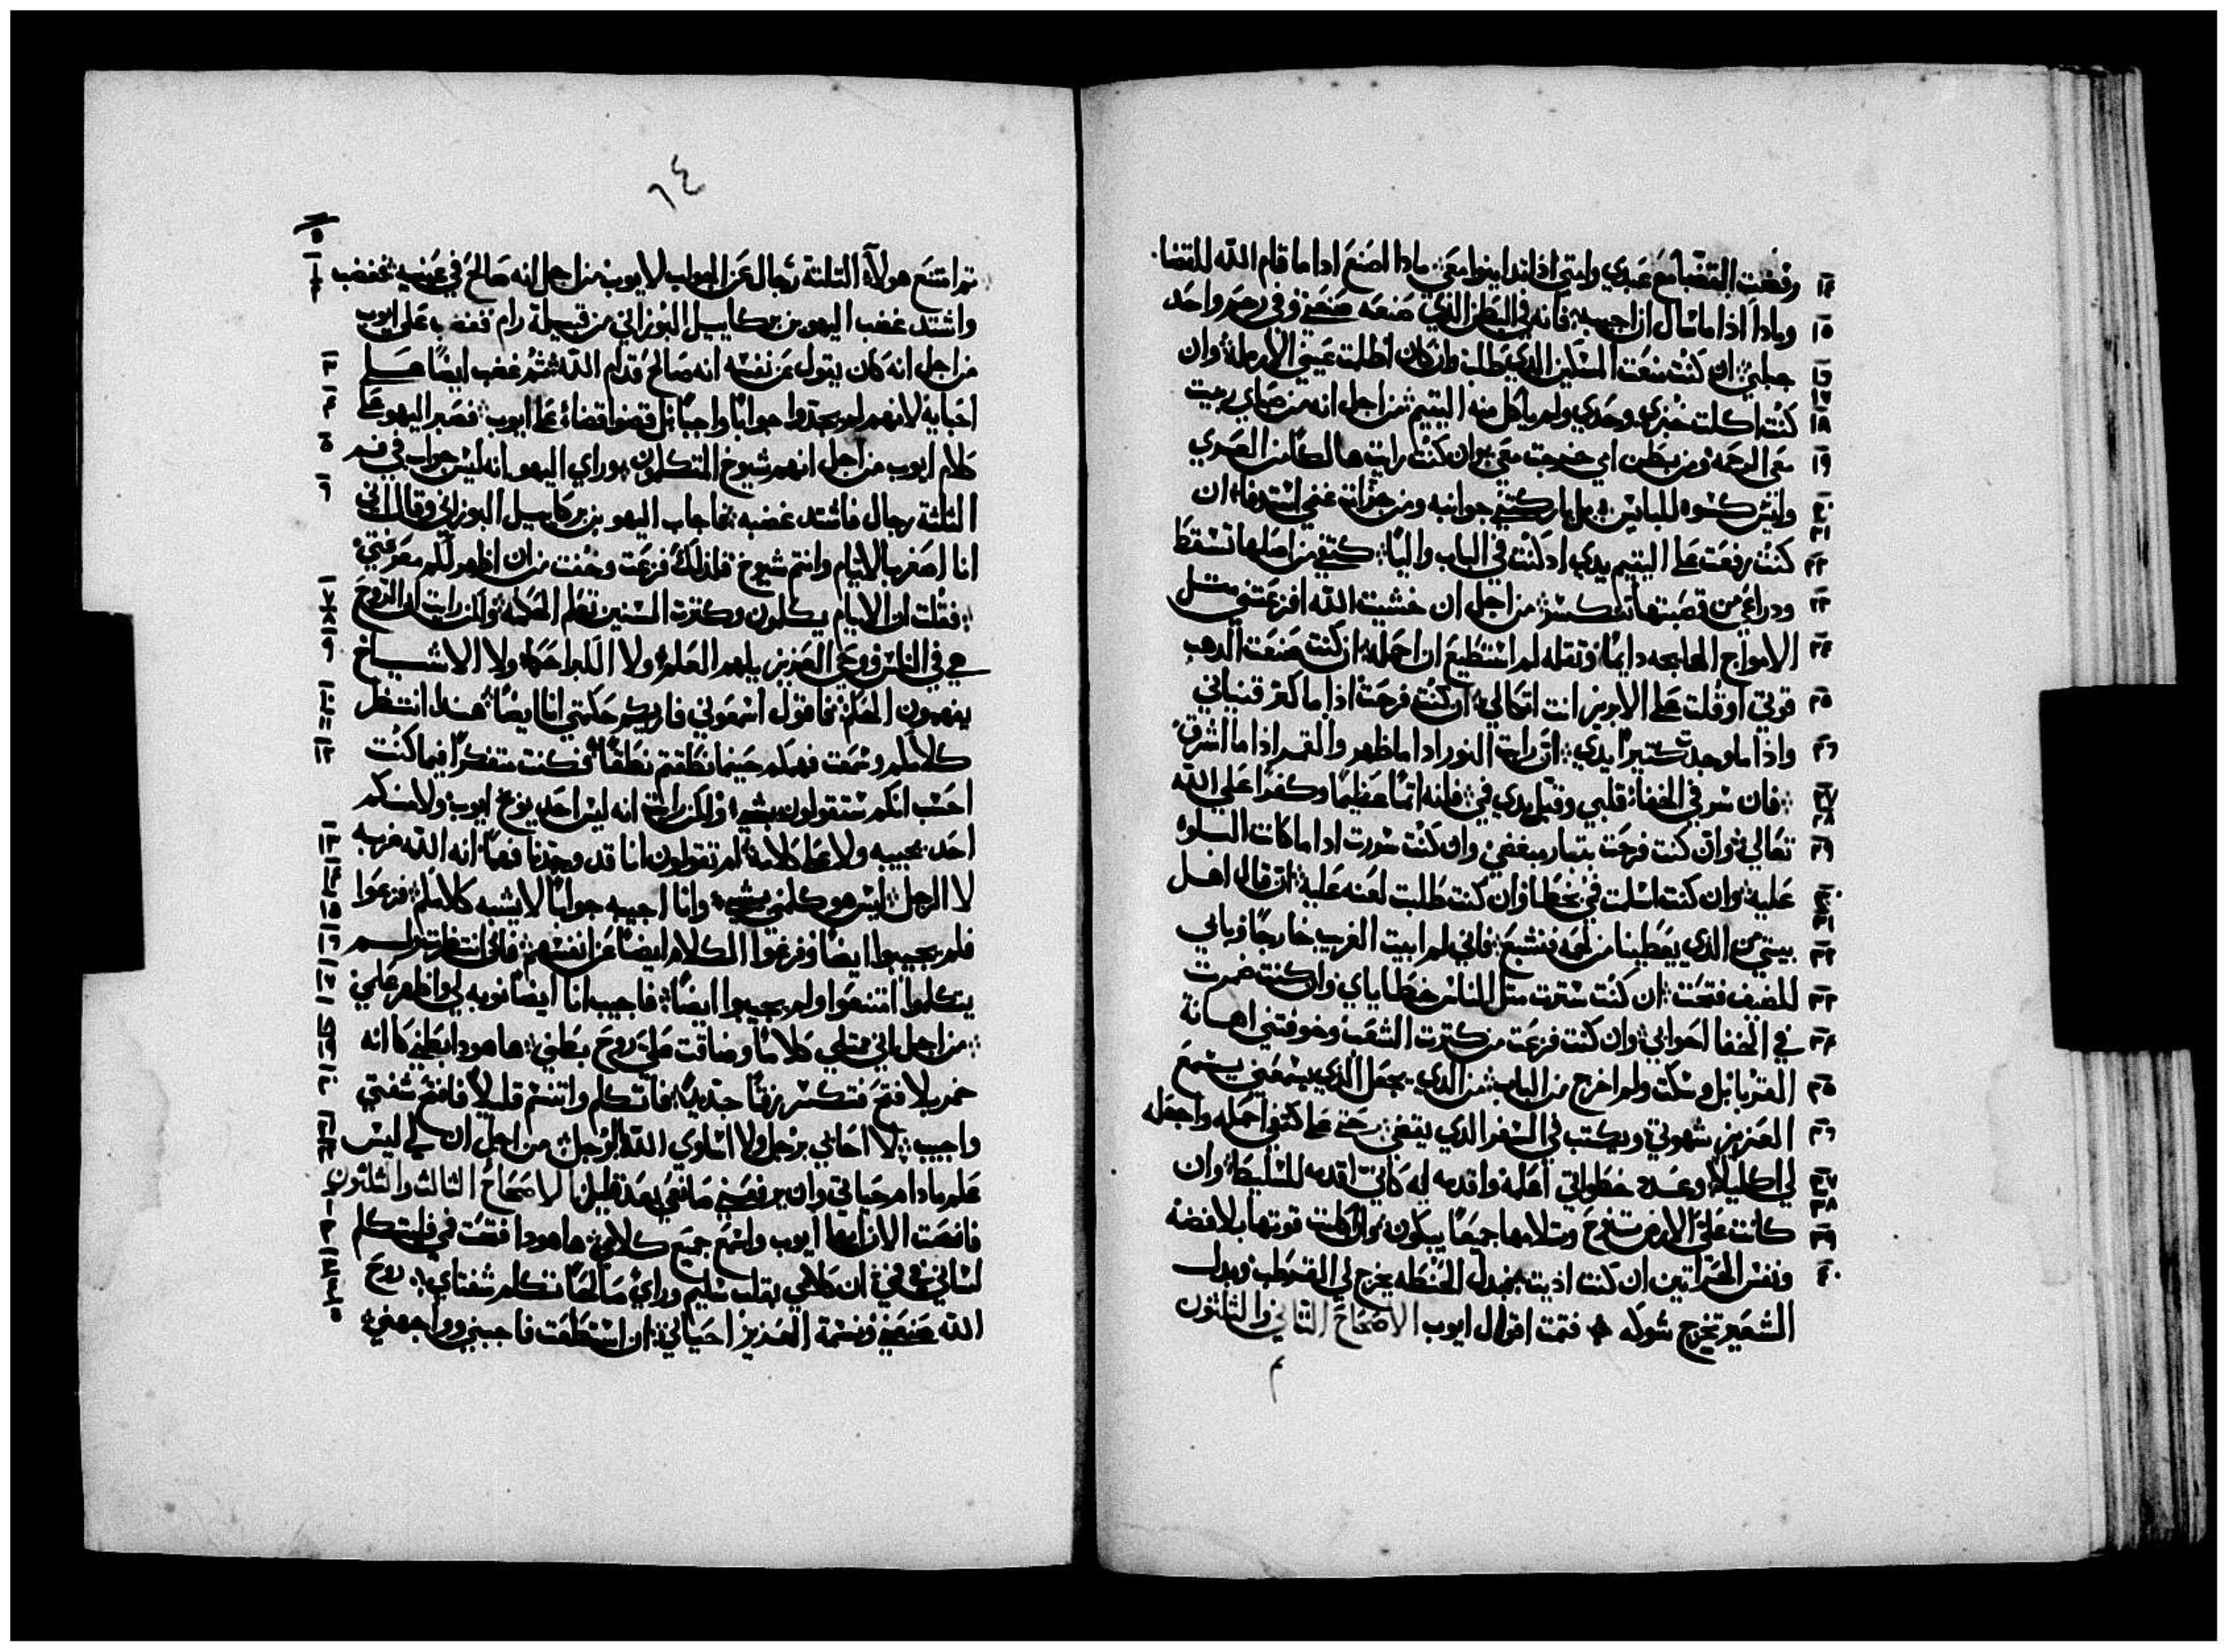 رفضت القضا مع عبدي وامتي اذ اندانوا معي مادا اصنع ادا ما قام الله للقضا
ومادا اذا ما سال ان اجيبه فانه في البطن الذي صنعه صنعني وفي رحم واحد
جبلني ان كنت منعت المسكين الدي يطلب وان كان اظلمت عيني الارمله وان
كنت اكلت خبزي وحدي ولم ياكل منه اليتيم من اجل انه من صباي ربيت
معي الرحمه ومن بطن امي خرجت معي وان كنت رايت هالكا من العري
وليس كسوه للباس بل باركتني جوانبه ومن جزات غنمي استدفا ان
كنت رفعت علي اليتيم يدي اد كنت في الباب واليا كتفي من اصلها تسقط
ودراعي من قصبتها تنكسر من اجل ان خشيت الله افزعتني متل
الامواج الهايجه دايما وتقله لم استطيع ان احمله ان كنت صنعت الدهب
قوتي او قلت علي الابريز انت اتكالي ان كنت فرحت اذا ما كتر قنياني
واذا ما وجدت كتيرا يدي ان رايت النور ادا ما ظهر والقمر اذا ما اشرق
فان سر في الخفا قلبي وقبل يدي في فانه اتما عظيما وكفرا علي الله
تعالي وان كنت فرحت بتبار مبغضي وان كنت سررت ادا ما كات السلوه
عليه وان كنت اسلت في بخطا وان كنت طلبت لعنه عليه ان قال اهل
بيتي من الدي يعطينا من لحمه فنشبع فاني لم ابيت الغريب خارجا وبابي
للضيف فتحت ان كنت سترت متل الناس خطاياي وان كنت ضمرت
في الخفا احوالي وان كنت فزعت من كترت الشعب وخوفتني اهانة
القربا بل وسكت ولم اخرج من الباب من الدي يجعل الدي يسمعني يسمع
العزيز شهوتي ويكتب في السفر الدي يقضي حتي علي كتفي احمله واجعله
لي اكليلا وعدد خطواتي اعلمه واقدمه له كاني اقدمه للسليط وان
كانت علي الارض تصرخ وتلامها جميعا يبكون وان اكلت قوتها بلا فضه
ونفس الحراتين ان كنت اديت فبدل الحنطه يخرج لي القرطب وبدل
الشعير تخرج شوكه فتمت اقوال ايوب الاصحاح التاني والتلتون
٦٤
تم امتنع هولاء التلتة رجال عن الجواب لايوب من اجل انه صالح في عينيه فغضب
واشتد غضب اليهو بن بركاييل البوزاني من قبيلة رام فغضب علي ايوب
من اجل انه كان يقول عن نفسه انه صالح قدام الله تم غضب ايضا علي
احبايه لانهم لم يجدوا جوابا واجبا بل قضوا قضاء علي ايوب فصبر اليهو علي
كلام ايوب من اجل انهم شيوخ المتكلمون وراي اليهو انه ليس جواب في فم
التلتة رجال فاشتد غضبه فاجاب اليهو بن بركاييل البوزاني وقال اني
انا اصغر بالايام وانتم شيوخ فلذلك فزعت وخفت من ان اظهر لكم معرفتي
فقلت ان الايام يتكلمون وكترت السنين تعلم الحكمه ولكن رايت ان الروح
هي في الناس ووحي العزيز يلهم العلم ولا الكبرا حكما ولا الاشياخ
يفهمون الحكم فاقول اسمعوني فاريكم حكمتي انا ايضا هندا انتظر
كلامكم وسمعت فهمكم حينما نطقتم نطقا فكنت متفكرا فيما كنت
احسب انكم ستقولون بشي ولكن رايت انه ليس احد يوبخ ايوب ولا منكم
احد يجيبه ولا علي كلامه لم تقولون انا قد وجدنا فهما انه الله ضربه
لا الرجل ليس هو كلمني بشي وانا اجيبه جوابا لا يشبه كلامكم فزعوا
فلم يجيبوا ايضا وفرغوا الكلام ايضا عن انفسهم فاني انتظرت ولم
يتكلموا امتنعوا ولم يجيبوا ايضا فاجيب انا ايضا نوبه لي واظهر علمي
من اجل اني ممتلي كلاما وضاقت علي روح بطني ها هودا بطني كانه
خمر بلا فتح فتكسر زقا جديدا فاتكلم واتنسم قليلا فافتح شفتي
واجيب لا احابي برجل ولا اساوي الله لرجل من اجل ان لي ليس
علم مادام حياتي وان يرفعني صانعي بعد قليل الاصحاح التالت والتلتون
فانصت الان ايها ايوب واسمع جميع كلامي ها هودا فتحت في فليتكلم
لساني في في ان كلامي بقلب سليم ورائ صالحا تتكلم شفتاي روح
الله صنعني ونسمة العزيز احياني ان استطعت فاجبني وواجهني